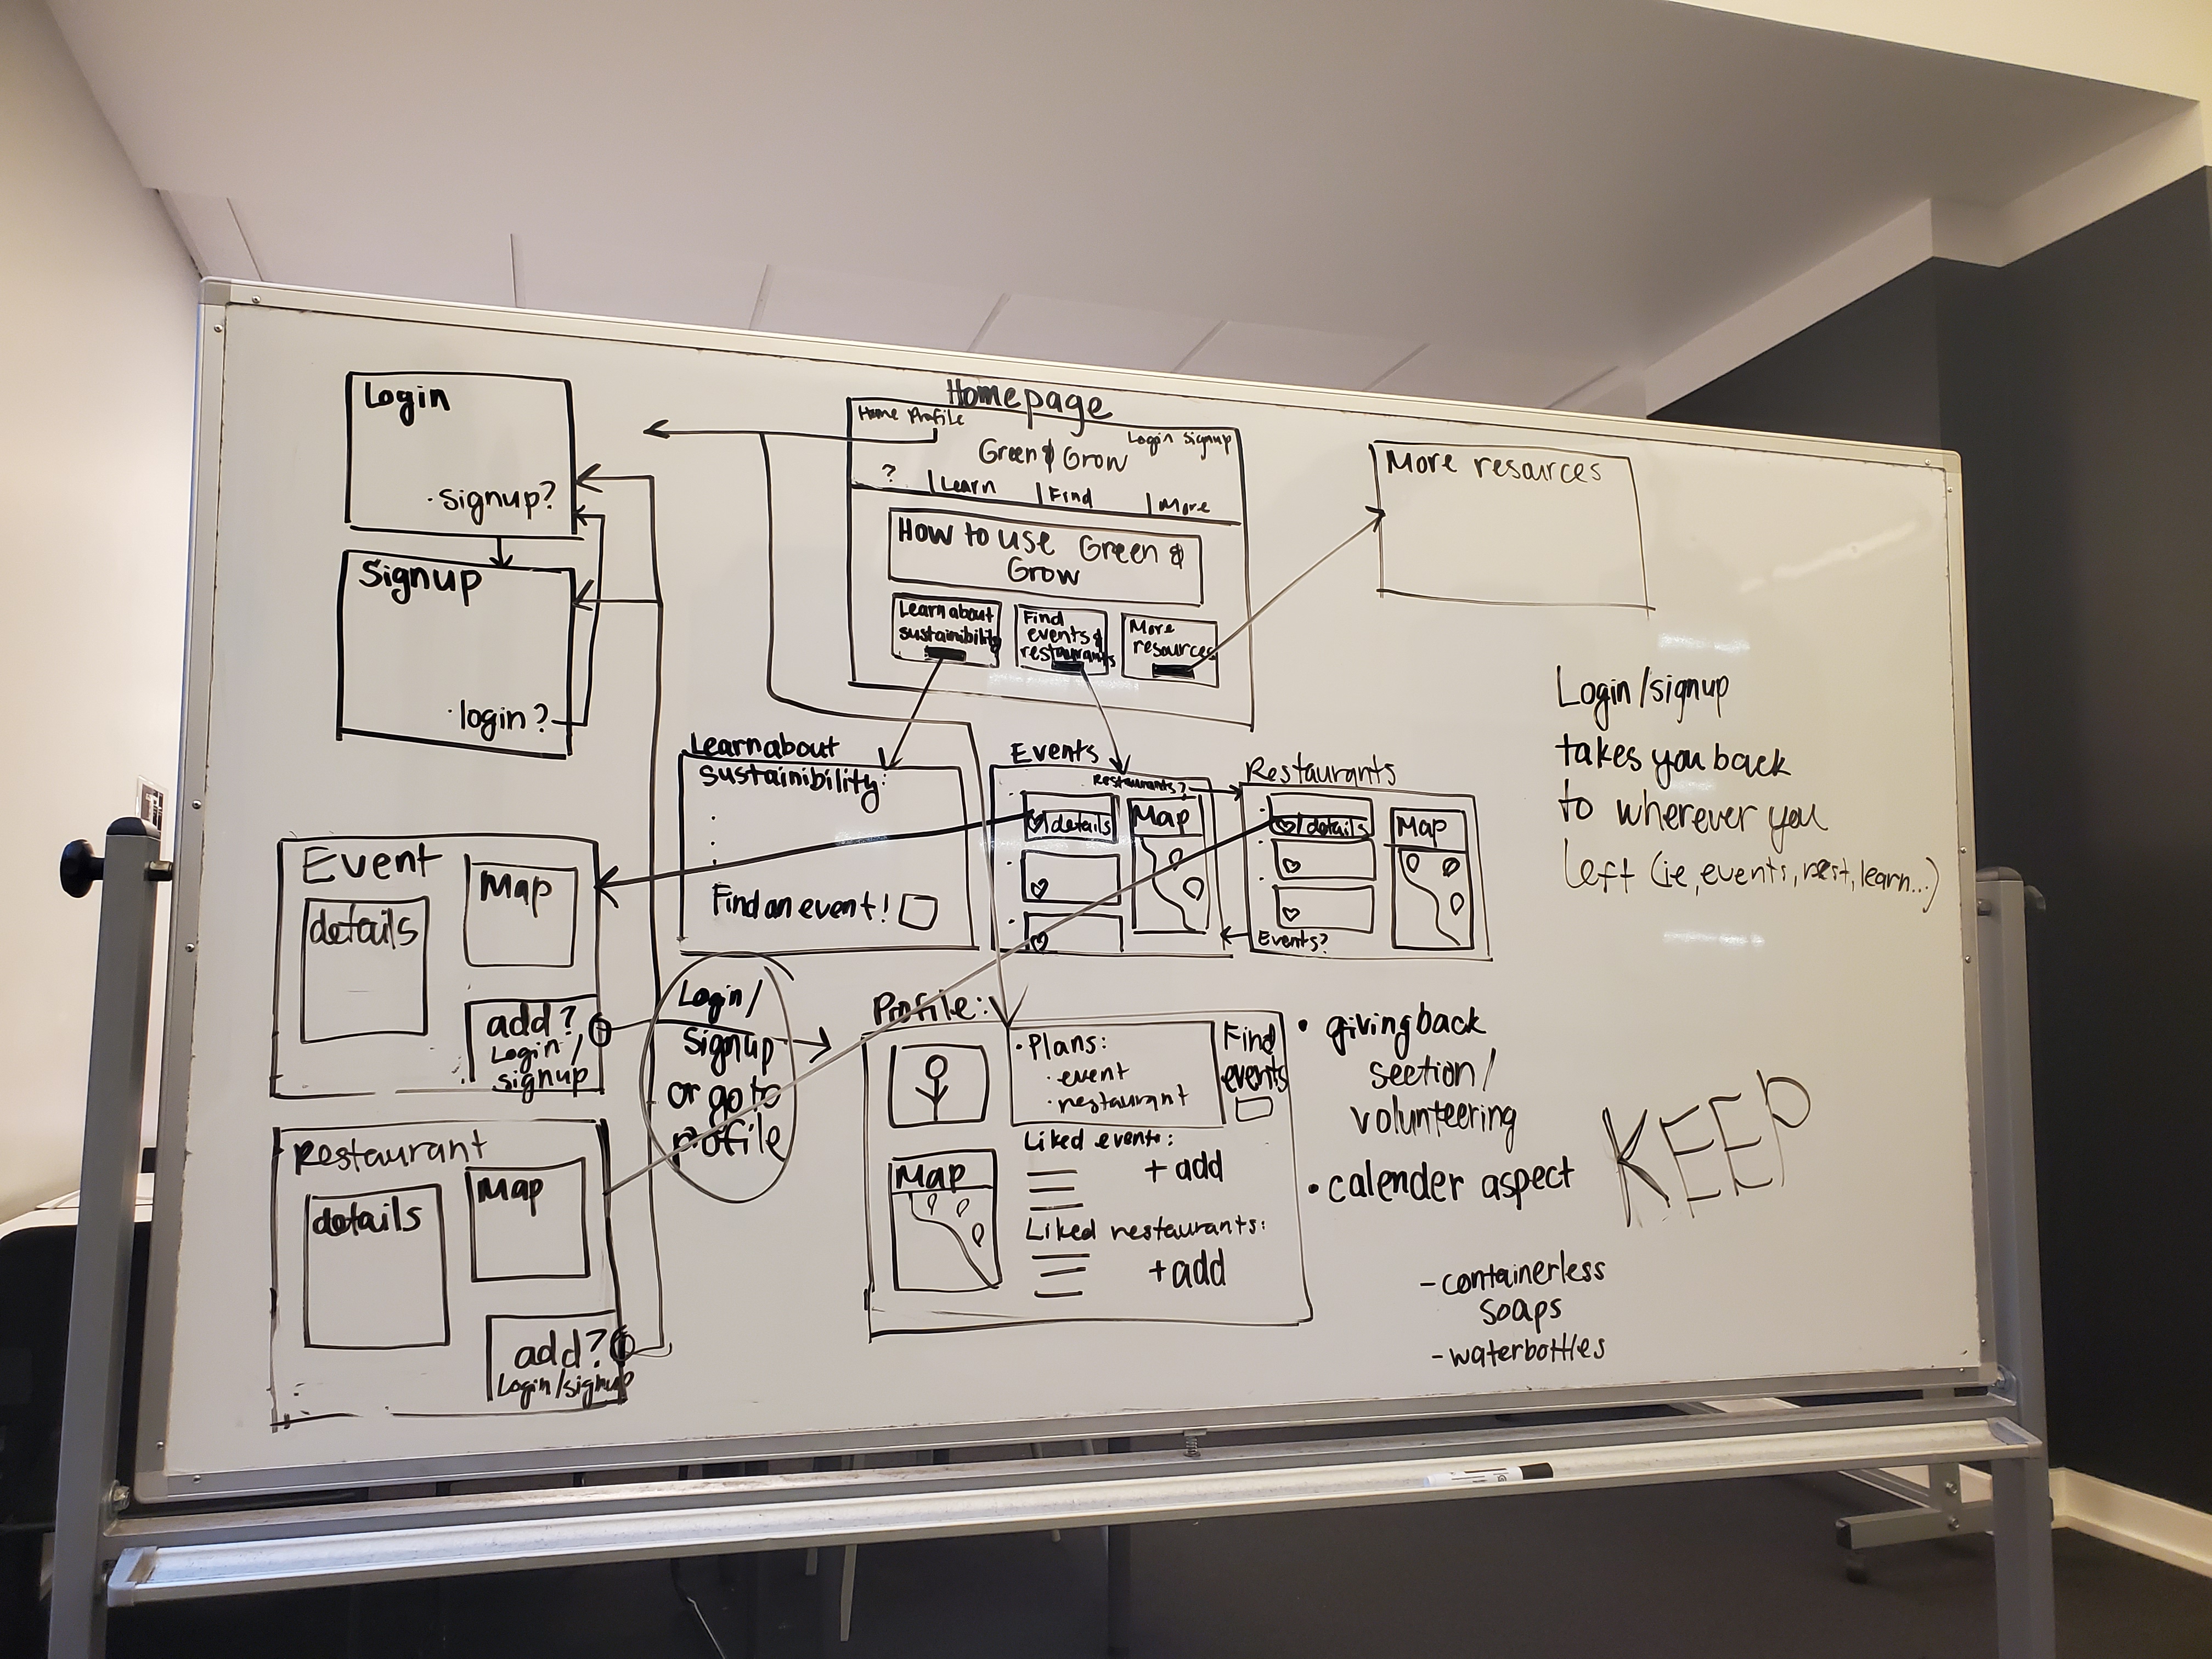 Login
· signup?
Signup
· login?
Homepage
Home Profile
Login Signup
Green & Grow
? | Learn | Find | More
How to use Green &
Grow
Learn about
sustainibility
Find
events &
restaurants
More
resources
More resources
Login/signup
takes you back
to wherever you
left (ie, events, rest, learn...)
Learn about
sustainibility:
Find an event!
Events
Restaurants?
details
Map
Restaurants
details
Map
Events?
Event
details
Map
add?
Login/
signup
Restaurant
details
Map
add?
Login/signup
Login/
Signup
or go to
profile
Profile:
· Plans:
· event
· restaurant
Find
events
Liked events:
+ add
Liked restaurants:
+ add
Map
• giving back
section/
volunteering
• calender aspect
KEEP
- containerless
soaps
- waterbottles